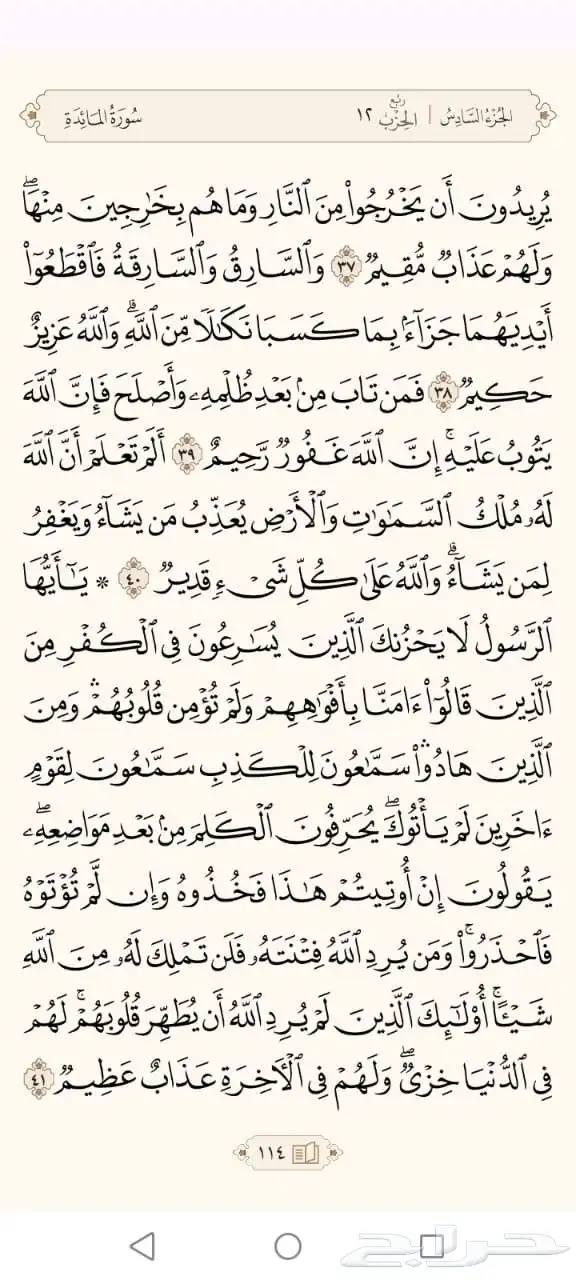 الجُزْءُ السَّادِسُ | رُبع الحِزْب ١٢ سُورَةُ المَائِدَةِ
يُرِيدُونَ أَن يَخْرُجُوا۟ مِنَ ٱلنَّارِ وَمَا هُم بِخَٰرِجِينَ مِنْهَاۖ
وَلَهُمْ عَذَابٌ مُّقِيمٌ ٣٧ وَٱلسَّارِقُ وَٱلسَّارِقَةُ فَٱقْطَعُوٓا۟
أَيْدِيَهُمَا جَزَآءًۢ بِمَا كَسَبَا نَكَٰلًا مِّنَ ٱللَّهِۗ وَٱللَّهُ عَزِيزٌ
حَكِيمٌ ٣٨ فَمَن تَابَ مِنۢ بَعْدِ ظُلْمِهِۦ وَأَصْلَحَ فَإِنَّ ٱللَّهَ
يَتُوبُ عَلَيْهِۚ إِنَّ ٱللَّهَ غَفُورٌ رَّحِيمٌ ٣٩ أَلَمْ تَعْلَمْ أَنَّ ٱللَّهَ
لَهُۥ مُلْكُ ٱلسَّمَٰوَٰتِ وَٱلْأَرْضِ يُعَذِّبُ مَن يَشَآءُ وَيَغْفِرُ
لِمَن يَشَآءُۗ وَٱللَّهُ عَلَىٰ كُلِّ شَىْءٍ قَدِيرٌ ٤٠ * يَٰٓأَيُّهَا
ٱلرَّسُولُ لَا يَحْزُنكَ ٱلَّذِينَ يُسَٰرِعُونَ فِى ٱلْكُفْرِ مِنَ
ٱلَّذِينَ قَالُوٓا۟ ءَامَنَّا بِأَفْوَٰهِهِمْ وَلَمْ تُؤْمِن قُلُوبُهُمْۛ وَمِنَ
ٱلَّذِينَ هَادُوا۟ۛ سَمَّٰعُونَ لِلْكَذِبِ سَمَّٰعُونَ لِقَوْمٍ
ءَاخَرِينَ لَمْ يَأْتُوكَۖ يُحَرِّفُونَ ٱلْكَلِمَ مِنۢ بَعْدِ مَوَاضِعِهِۦۖ
يَقُولُونَ إِنْ أُوتِيتُمْ هَٰذَا فَخُذُوهُ وَإِن لَّمْ تُؤْتَوْهُ
فَٱحْذَرُوا۟ۚ وَمَن يُرِدِ ٱللَّهُ فِتْنَتَهُۥ فَلَن تَمْلِكَ لَهُۥ مِنَ ٱللَّهِ
شَيْـًٔاۚ أُو۟لَٰٓئِكَ ٱلَّذِينَ لَمْ يُرِدِ ٱللَّهُ أَن يُطَهِّرَ قُلُوبَهُمْۚ لَهُمْ
فِى ٱلدُّنْيَا خِزْىٌۖ وَلَهُمْ فِى ٱلْـَٔاخِرَةِ عَذَابٌ عَظِيمٌ ٤١
١١٤
حراج